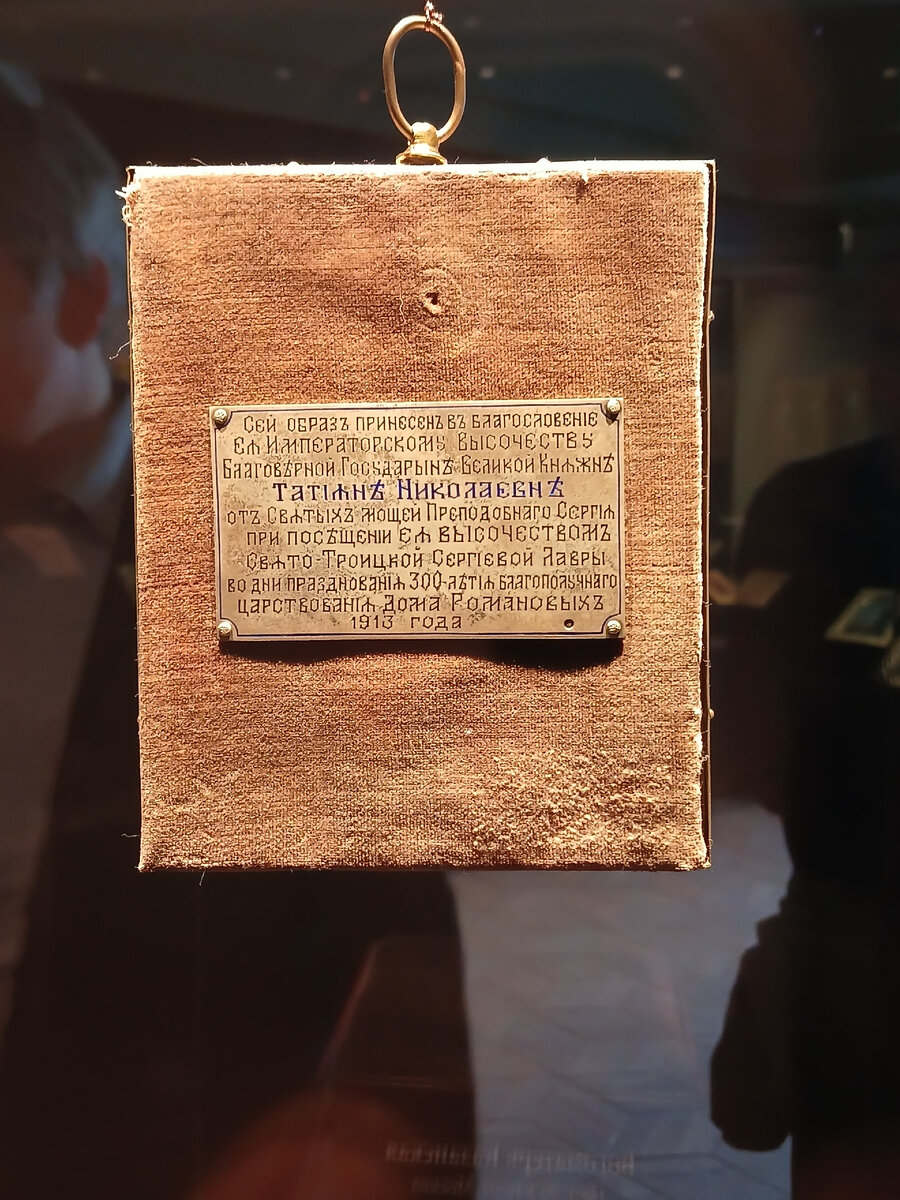 Сей образъ принесенъ въ благословенїе
Еѧ Императорскому Высочеству
Благовѣрной Государынѣ Великой Княжнѣ
Татїѧнѣ Николаевнѣ
отъ Свѧтыхъ мощей Преподобнаго Сергїѧ
при посѣщенїи Еѧ Высочествомъ
Свѧто-Троицкой Сергїевой Лавры
во дни празднованїѧ 300-лѣтїѧ благополучнаго
царствованїѧ Дома Романовыхъ
1913 года
Богоматерь Казанская